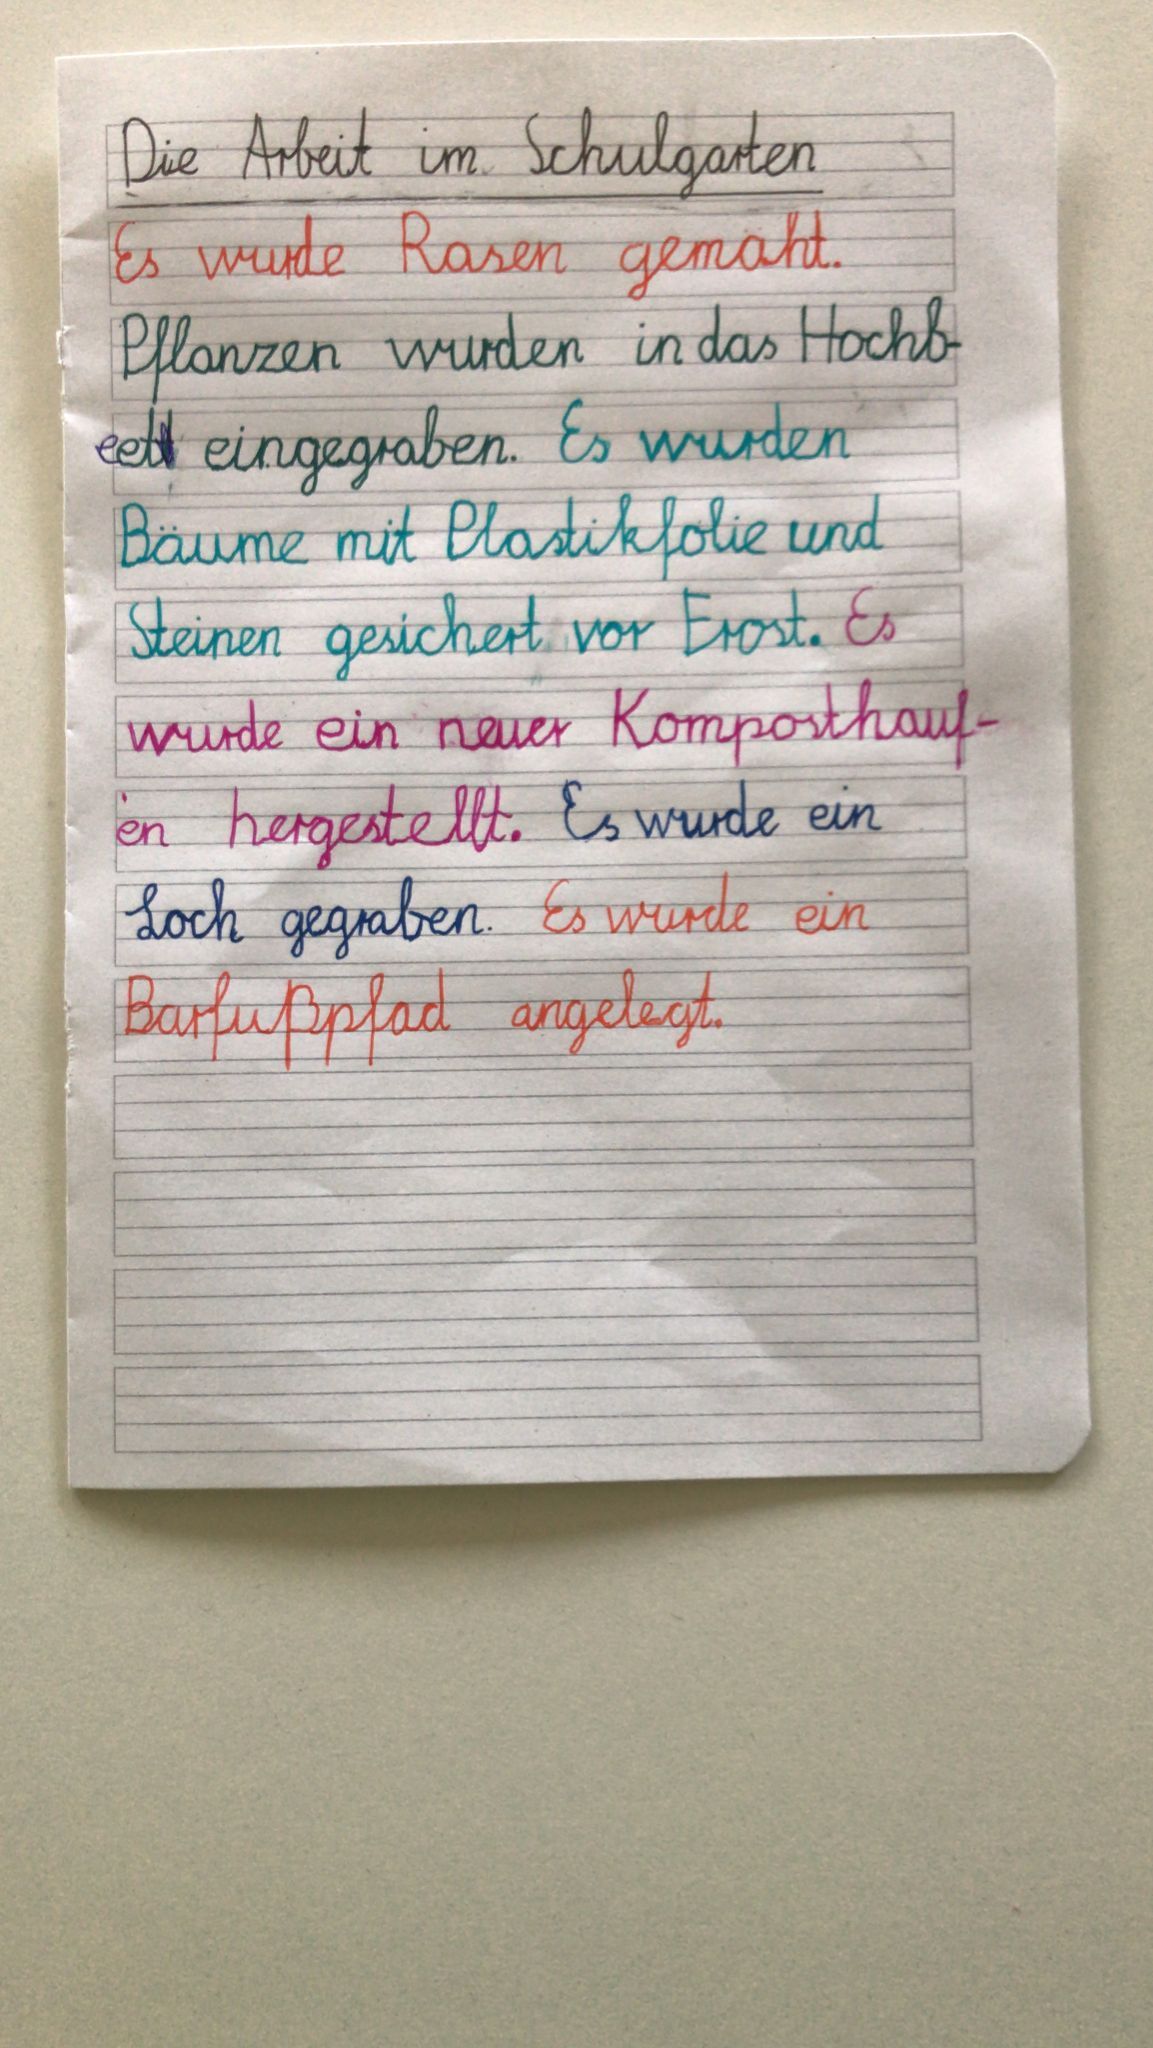 Die Arbeit im Schulgarten
Es wurde Rasen gemäht.
Pflanzen wurden in das Hochb-
eett eingegraben. Es wurden
Bäume mit Plastikfolie und
Steinen gesichert vor Frost. Es
wurde ein neuer Komposthauf-
en hergestellt. Es wurde ein
Loch gegraben. Es wurde ein
Barfußpfad angelegt.